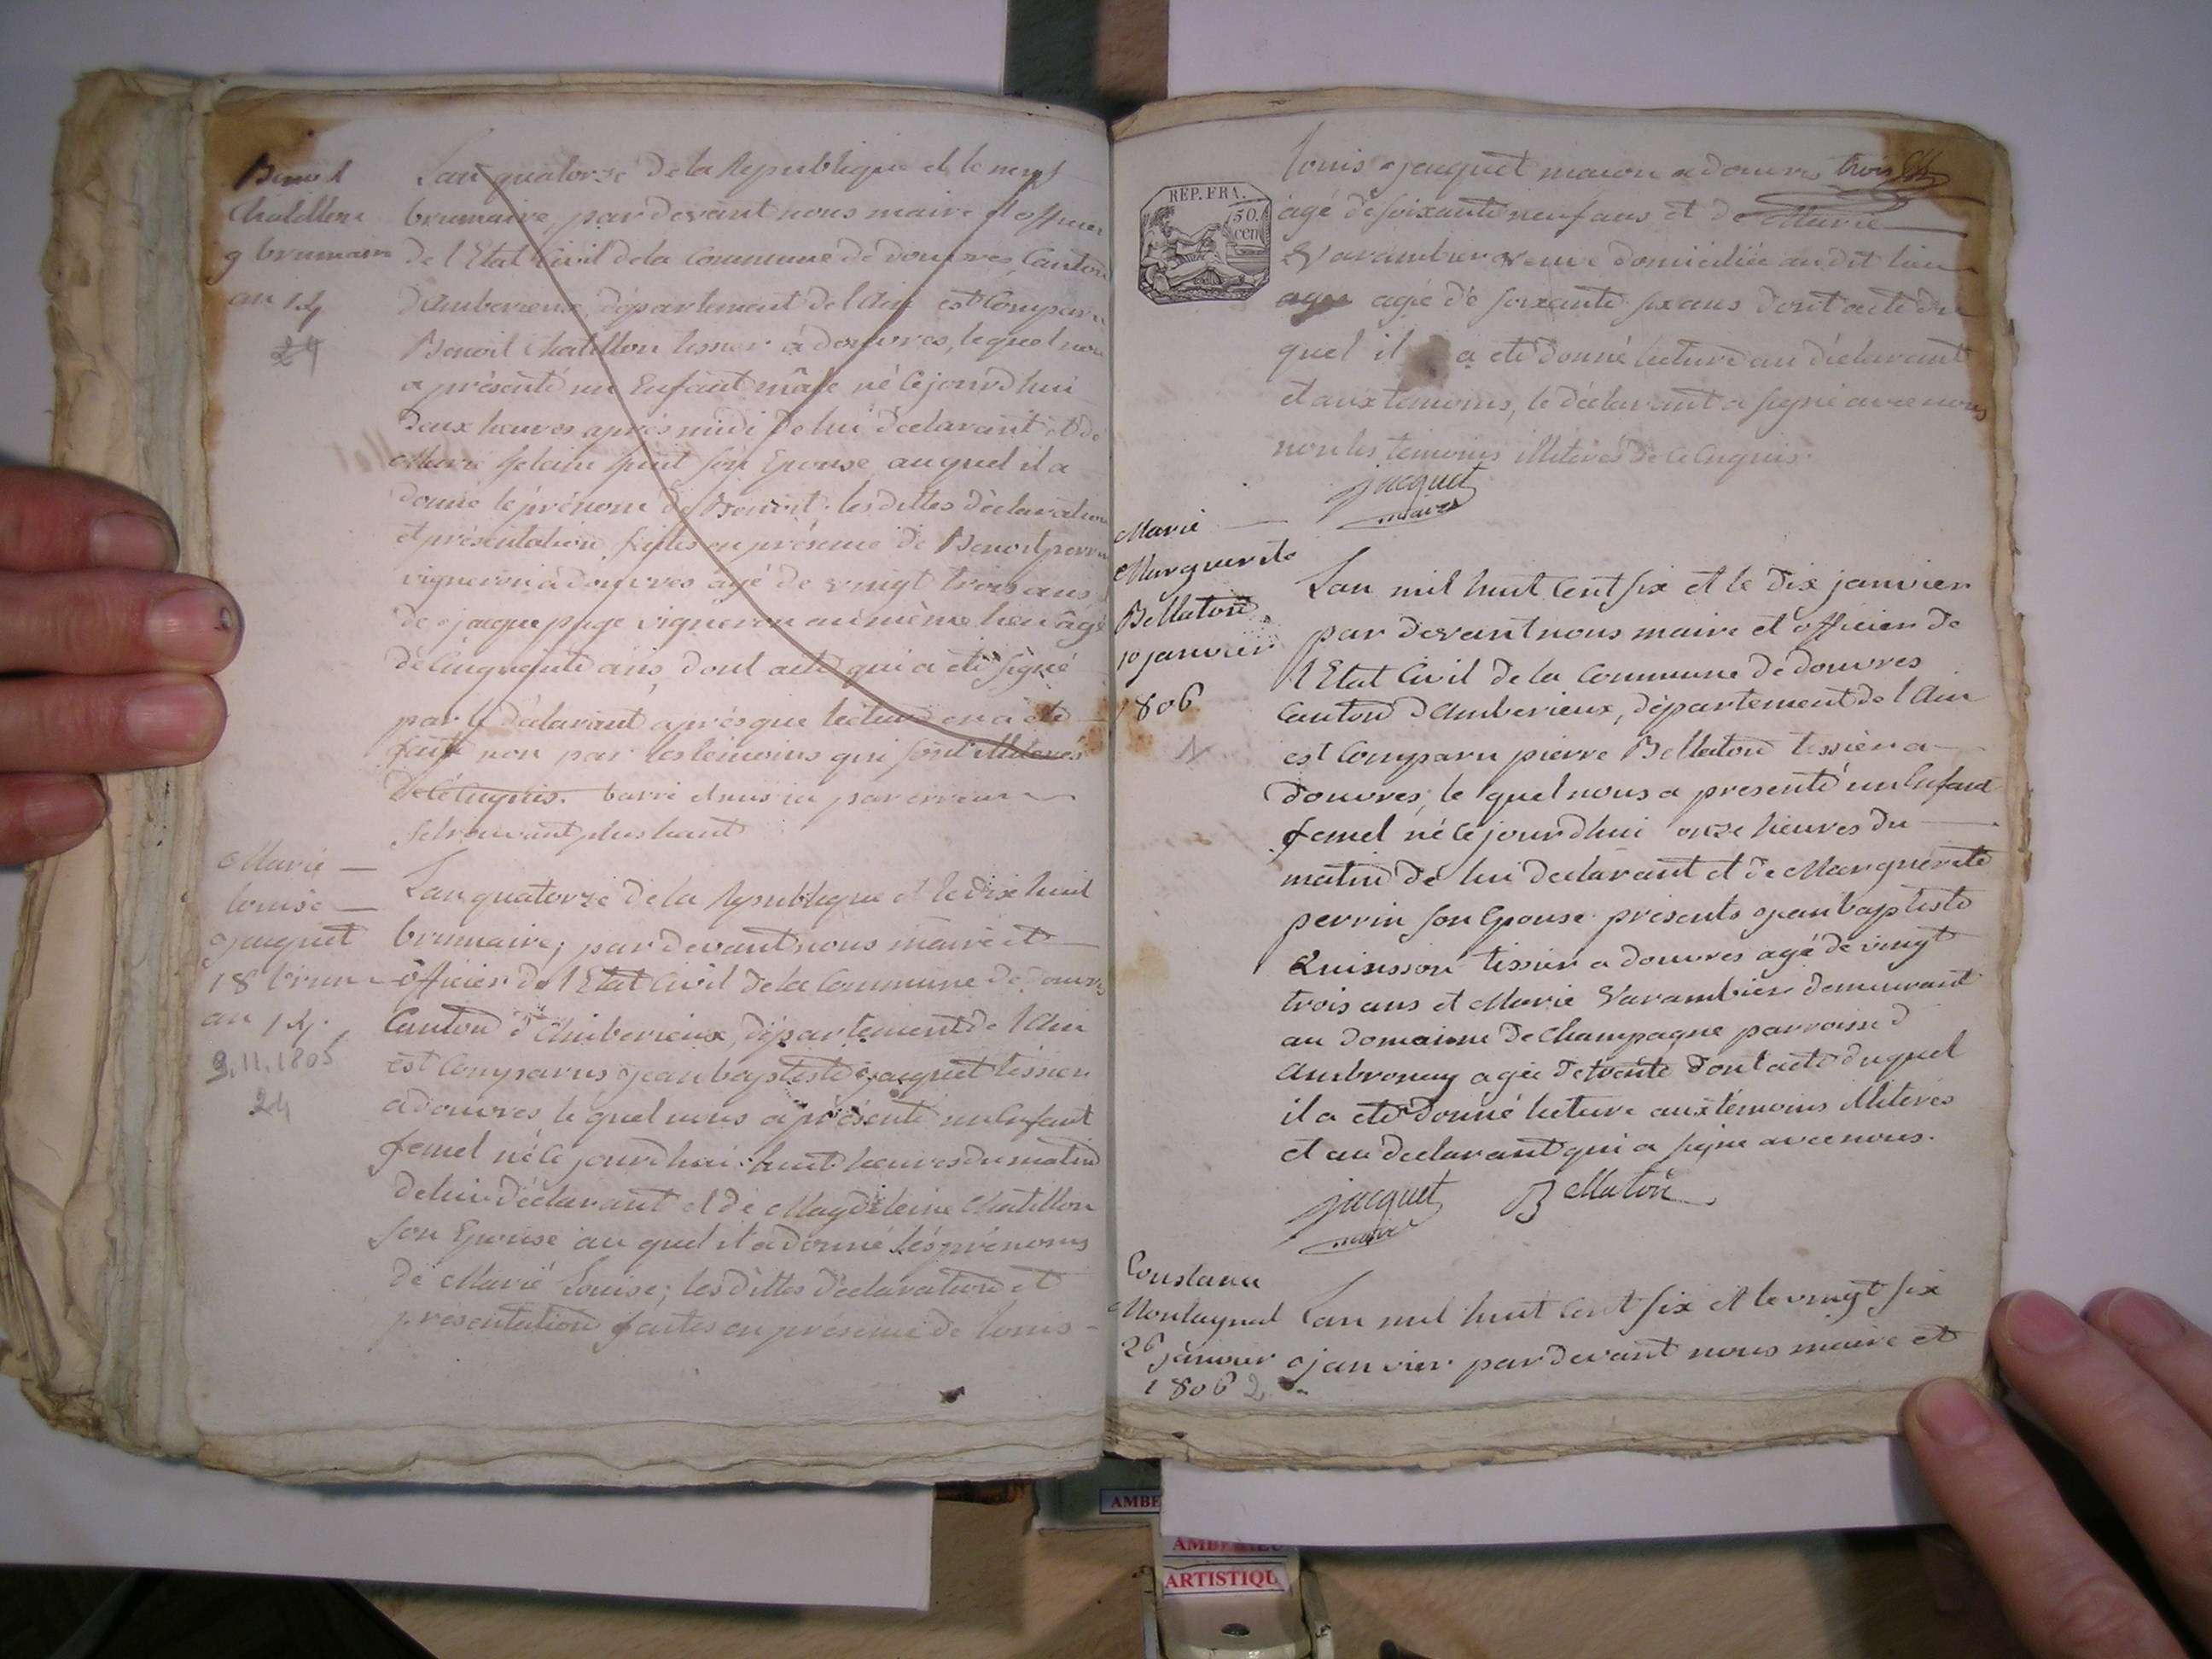 Benoit
Chatillon
9 brumaire
an 14
24
L'an quatorze de la Republique et le neuf
brumaire, par devant nous maire et officier
de l'Etat Civil de la Commune de douvres, Canton
d'Amberieux, département de l'Ain est Comparu
Benoit Chatillon tissier a douvres, lequel nous
a présenté un Enfant mâle né Cejourd'hui
deux heures après midi de lui déclarant et de
Marie son Epouse, auquel il a
donné le prénom de Benoit. les dittes déclaration
et présentation faites en présence de Benoit perrin
vigneron a douvres agé de vingt trois ans
de jacque page vigneron au même lieu âgé
de Cinquante ans, dont acte qui a été signé
par le déclarant après que lecture en a été
faite non par les témoins qui sont illiterés
de ce enquis. barré et mis ici par erreur
se trouvant plus haut
Marie
louise
jacquet
18 brum
an 14.
9.11.1805
24
L'an quatorze de la Republique et le dix huit
brumaire, par devant nous maire et
officier de l'Etat Civil de la Commune de douvres
Canton d'Amberieux, département de l'Ain
est Comparus jean baptiste jacquet tissier
a douvres, le quel nous a présenté un Enfant
femel né Ce jourd'hui huit heures du matin
de lui déclarant et de Magdeleine Chatillon
son Epouse au quel il a donné les prénoms
de Marie Louise; les dittes déclaration et
présentation faites en présence de louis
REP. FRA.
50.
cen
louis jacquet macon a douvres trois
agé de soixante neuf ans et de Marie
Varambier veuve domiciliée au dit lieu
agée de soixante six ans dont acte du
quel il a eté donné lecture au déclarant
et aux temoins, le déclarant a signé avec nous
non les temoins illiteres de ce Enquis.
jacquet
maire
Marie
Marguerite
Bellaton
10 janvier
1806
1
L'an mil huit Cent six et le dix janvier
par devant nous maire et officier de
l'Etat Civil de la Commune de douvres
Canton d'Amberieux, département de l'Ain
est Comparu pierre Bellaton tissier a
douvres, le quel nous a presenté un Enfant
femel né Cejourd'hui onze heures du
matin de lui declarant et de Marguerite
perrin son Epouse presents jean baptiste
Quinsson tissier a douvres agé de vingt
trois ans et Marie Varambier demeurant
au domaine de Champagne parroisse d
Ambronay agée de trente dont acte duquel
il a eté donné lecture aux témoins illiteres
et au declarant qui a signé avec nous.
jacquet Bellaton
maire
Constance
Montagnat
26 janvier
1806 2
L'an mil huit Cent six et le vingt six
janvier par devant nous maire et
AMBE
AMBERIEU
ARTISTIQU